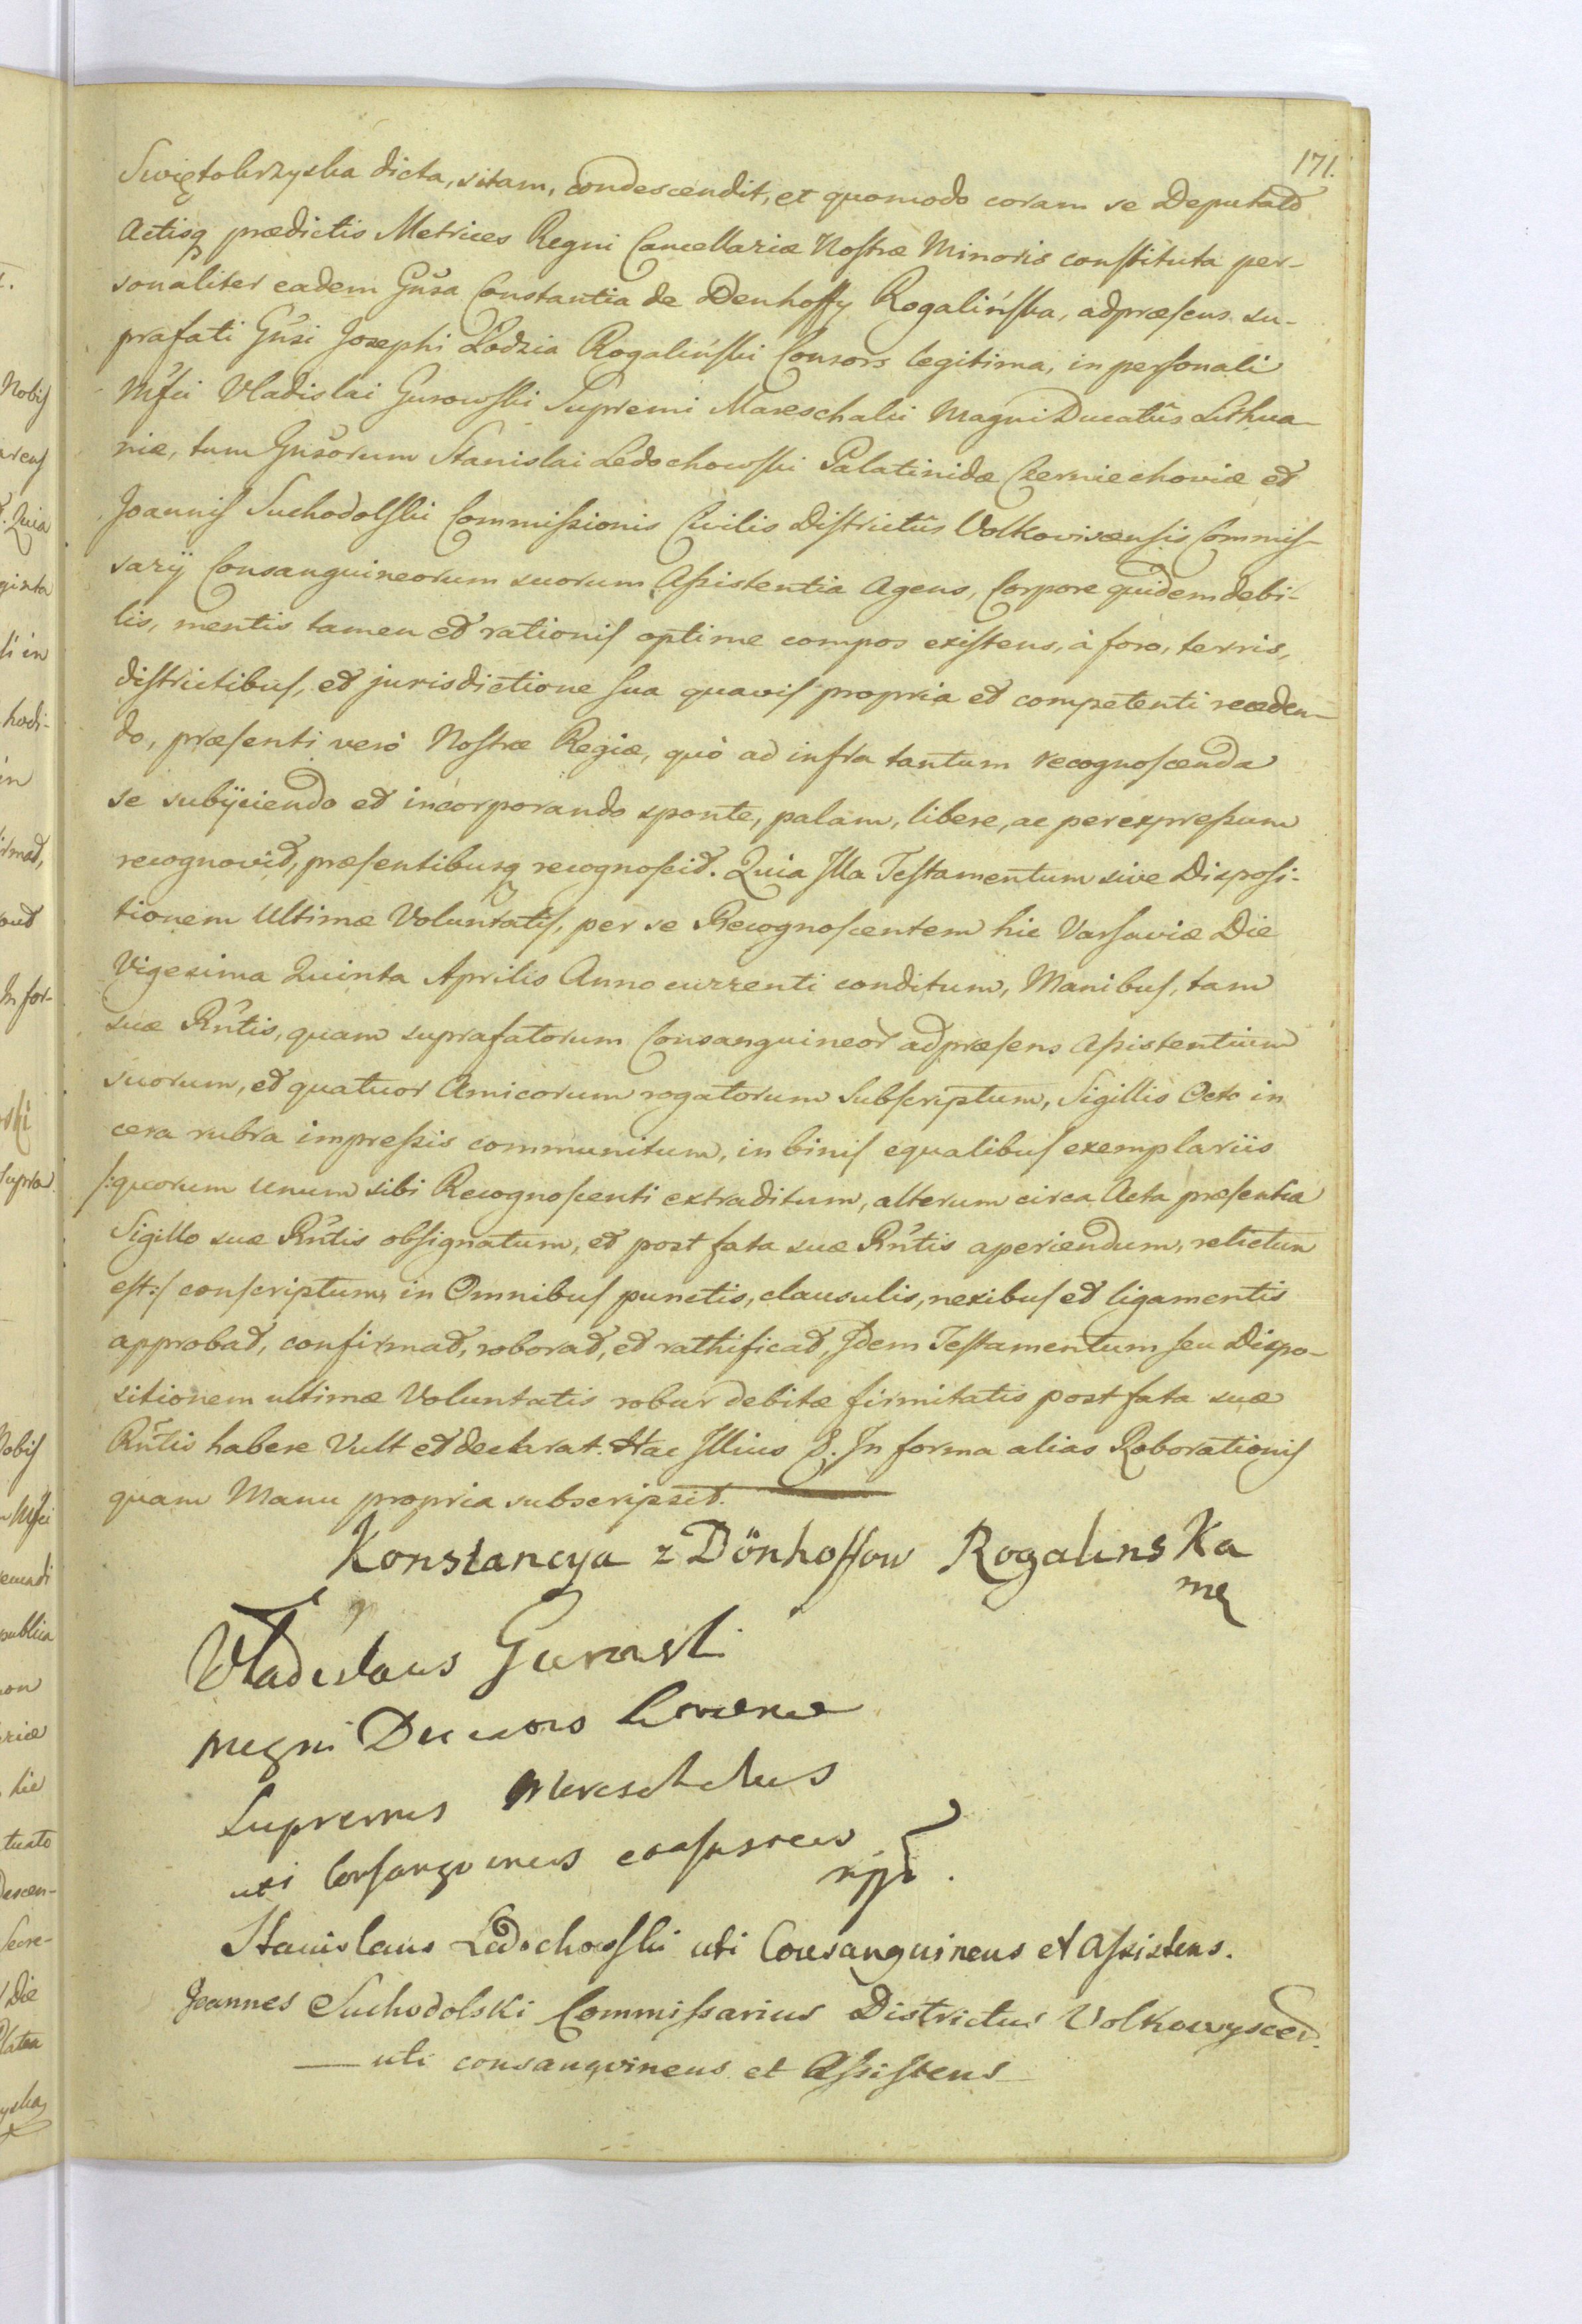 171.
Swiętokrzyska dicta, sitam, condescendit, et quomodo coram se Deputato
Actisq prædictis Metrices Regni Cancellariæ Nostræ Minoris constituta per-
sonaliter eadem Gn̄sa Constantia de Denhoffy Rogalińska, adpræsens su-
prafati Gn̄si Josephi Łodzia Rogaliński Consors legitima, in personali
M̄fci Vladislai Gurowski Supremi Mareschalci Magni Ducatûs Lithua-
niæ, tum Gn̄sorum Stanislai Ledochowski Palatinidæ Czerniechoviæ et
Joannis Suchodolski Commissionis Civilis Districtûs Volkoviscensis Commis-
sarÿ Consanguineorum suorum Assistentia agens, Corpore quidem debi-
lis, mentis tamen et rationis optime compos existens, à foro, terris,
districtibus, et jurisdictione sua quavis propria et competenti receden-
do, præsenti verò Nostræ Regiæ, quò ad infra tantum recognoscenda
se subÿciendo et incorporando sponte, palam, libere, ac per expressum
recognovit, præsentibusq recognoscit. Quia Illa Testamentum sive Disposi-
tionem Ultimæ Voluntatis, per se Recognoscentem hic Varsaviæ Die
Vigesima Quinta Aprilis Anno currenti conditum, Manibus, tam
suæ Rn̄tis, quam suprafatorum Consanguineor adpræsens Assistentium
suorum, et quatuor Amicorum rogatorum subscriptum, Sigillis Octo in
cera rubra impressis communitum, in binis equalibus exemplariis
/:quorum unum sibi Recognoscenti extraditum, alterum circa Acta præsentia
Sigillo suæ Rn̄tis obsignatum, et post fata suæ Rn̄tis aperiendum, relictum
est:/ conscriptum, in Omnibus punctis, clausulis, nexibus et ligamentis
approbat, confirmat, roborat, et rathificat, Idem Testamentum seu Dispo-
sitionem ultimæ Voluntatis robur debitæ firmitatis post fata suæ
Rn̄tis habere Vult et declarat. Hac Illius S. In forma alias Roborationis
quam Manu propria subscripsit.
Konstancya z Dönhoffow Rogalinska
mp
Vladislaus Gurowski
Magni Ducatus Lituanie
Supremus Mareschalcus
uti Consanguineus
mpp.
Stanislaus Ledochowski uti Consanguineus et Assistens.
Joannes Suchodolski Commissarius Districtus Volkowyscen.
uti consanqvineus et Assistens